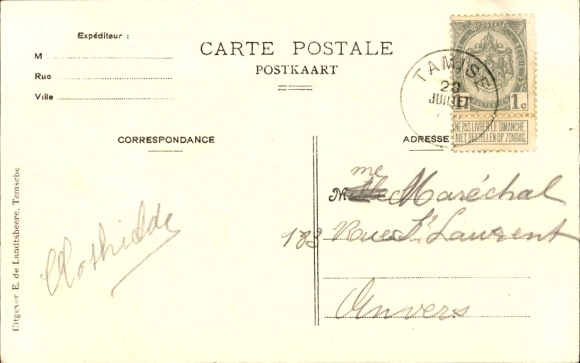 Expéditeur :
M
Rue
Ville
CARTE POSTALE
POSTKAART
TAMISE
20
JUILLET
1c
NE PAS LIVRER LE DIMANCHE
NIET BESTELLEN OP ZONDAG
CORRESPONDANCE
ADRESSE
Mme Maréchal
183 Rue St Laurent
Anvers
Clothilde
Uitgever E. de Landtsheere, Temsche